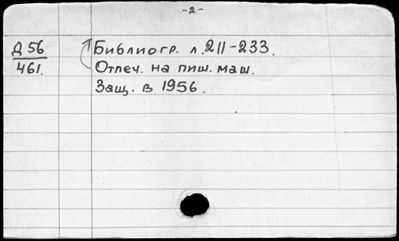 -2-
Д 56
461.
Библиогр. л. 211-233.
Отпеч. на пиш. маш.
Защ. в 1956.